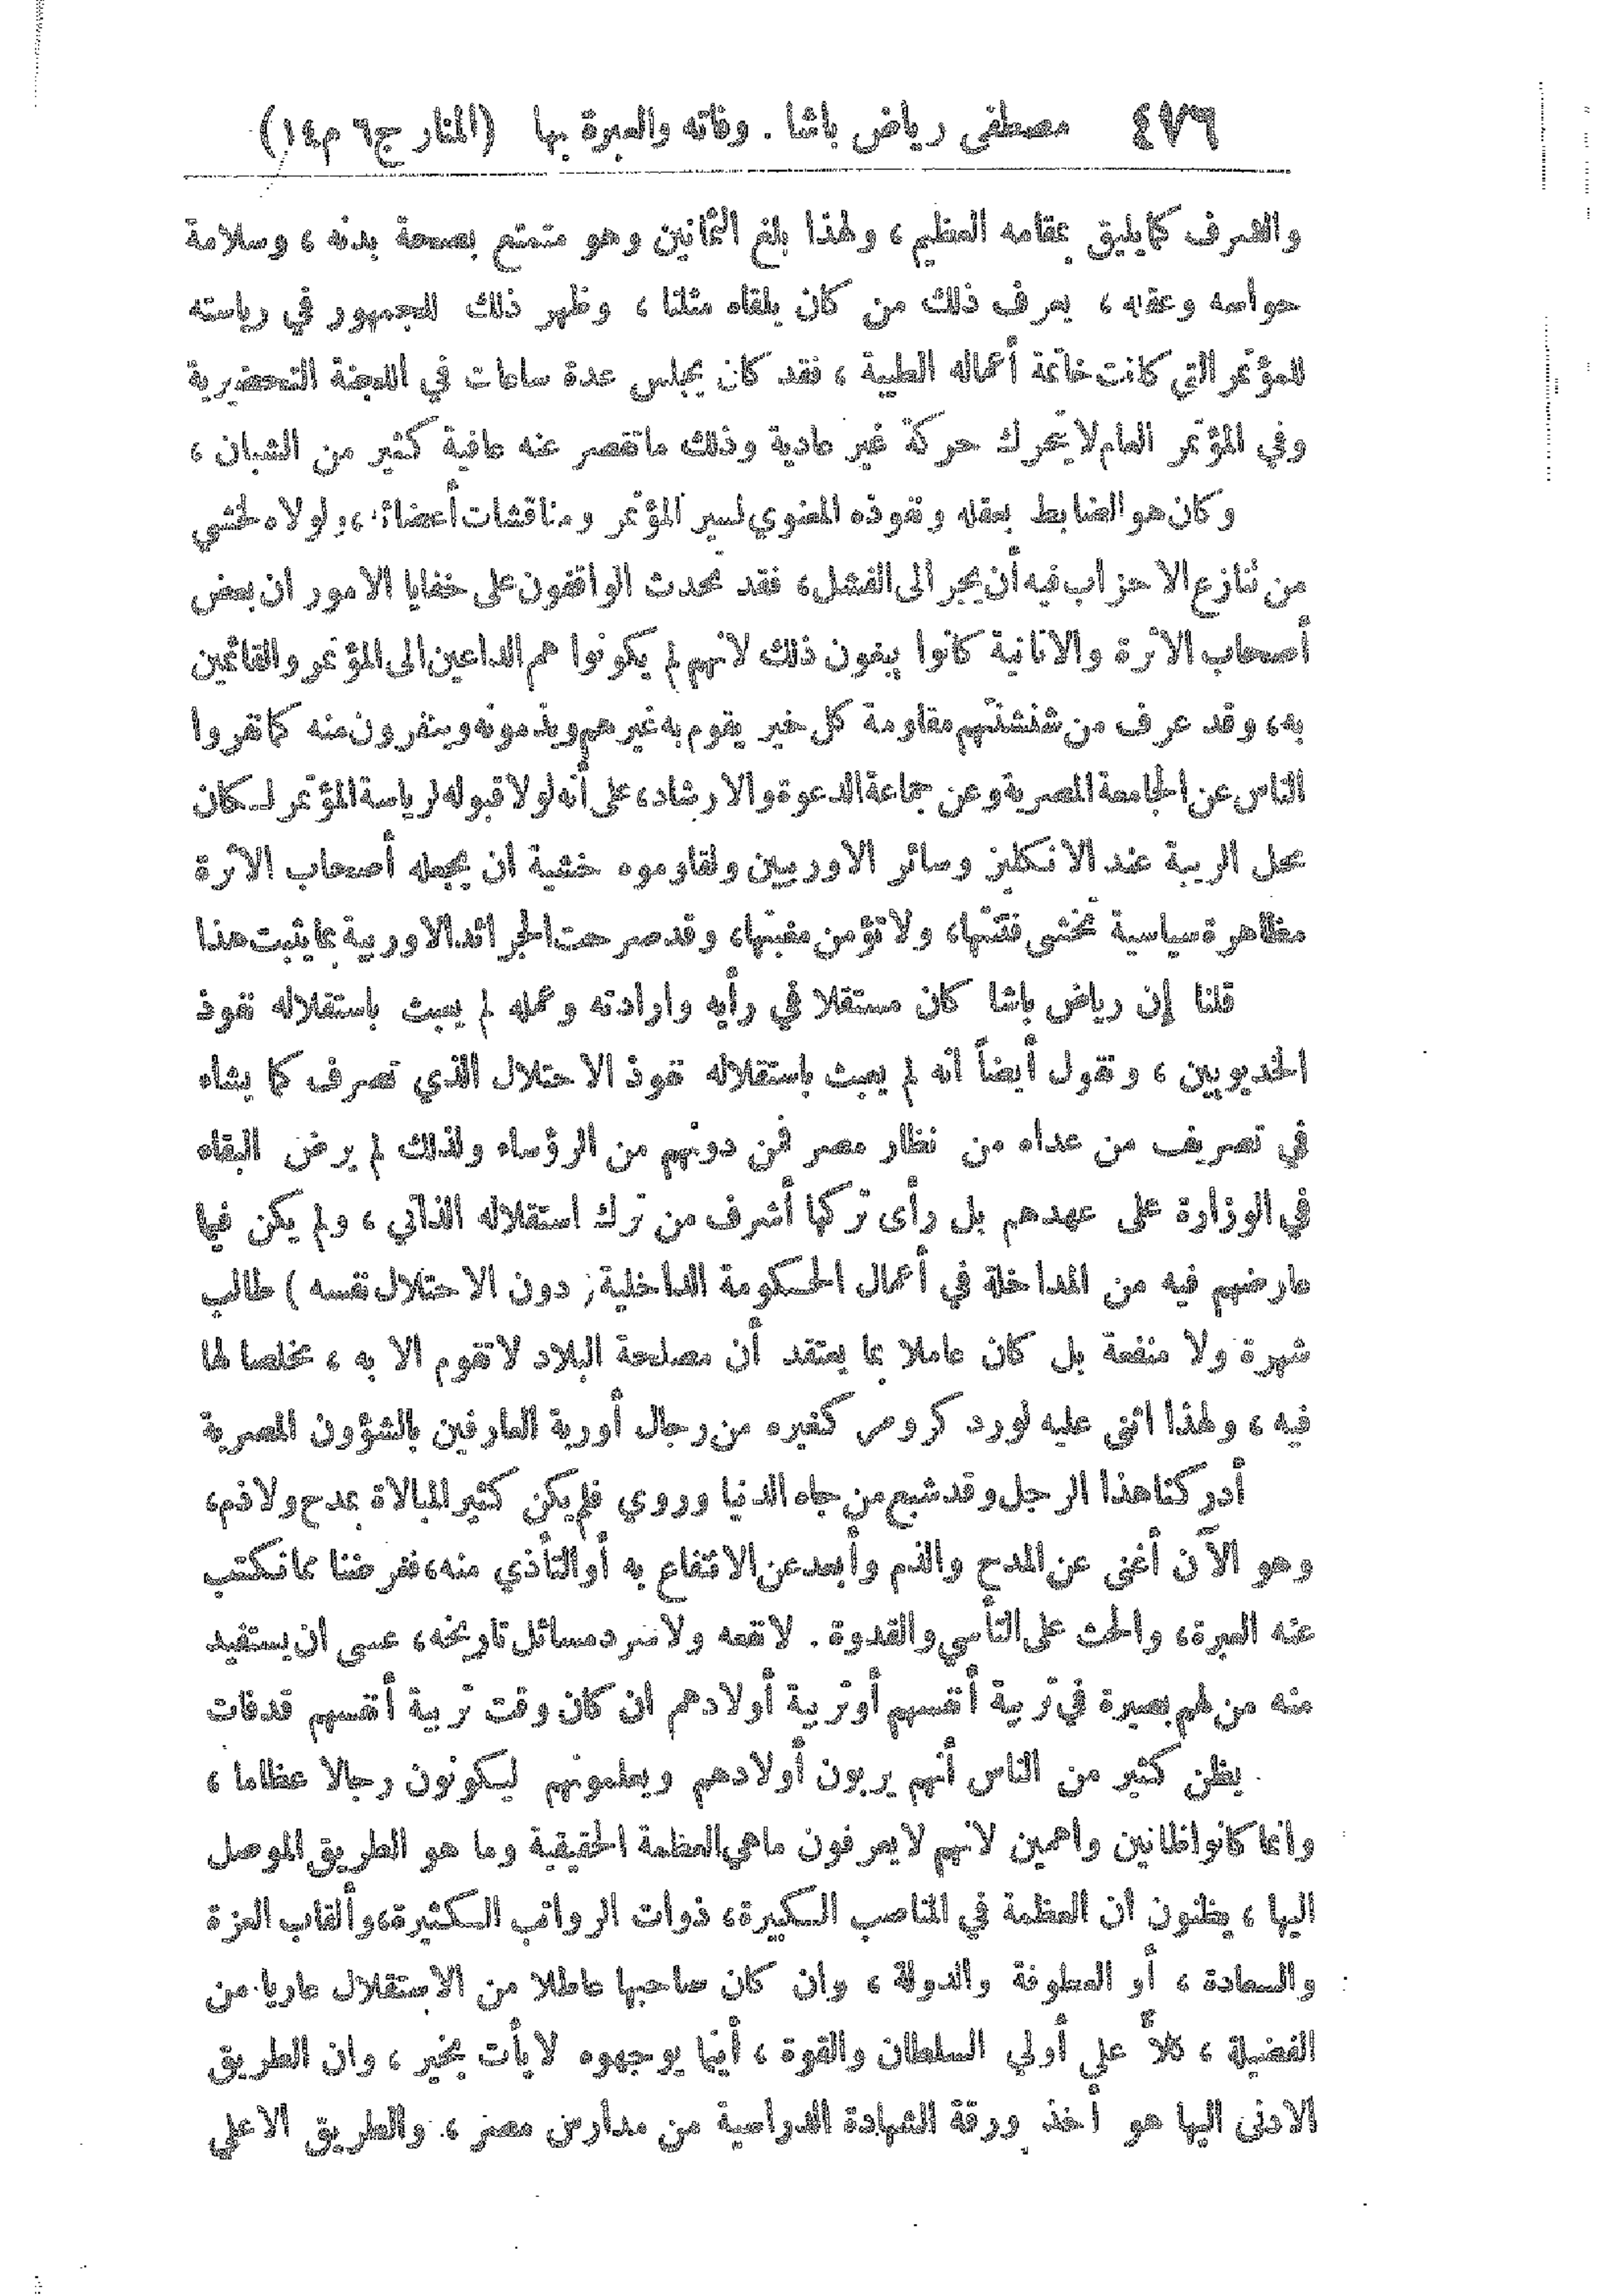 ٤٧٦ مصطفى رياض باشا . وفاته والعبرة بها (المنار ج ٦ م ١٤)
والشرف كما يليق بمقامه العظيم ، ولهذا بلغ الثمانين وهو متمتع بصحة بدنه ، وسلامة
حواسه وعقله ، يعرف ذلك من كان يلقاه مثلنا ، وظهر ذلك للجمهور في رياسته
للمؤتمر التي كانت خاتمة أعماله الطيبة ، فقد كان يجلس عدة ساعات في اللجنة التحضيرية
وفي المؤتمر العام لا يتحرك حركة غير عادية وذلك ما تقصر عنه عافية كثير من الشبان ،
وكان هو الضابط بعقله ونفوذه المعنوي لسير المؤتمر ومناقشات أعضائه ، ولولاه لخشي
من تنازع الاحزاب فيه أن يجر الى الفشل ، فقد تحدث الواقفون على خفايا الامور ان بعض
أصحاب الاثرة والانانية كانوا يبغون ذلك لانهم لم يكونوا هم الداعين الى المؤتمر والقائمين
به ، وقد عرف من شنشنتهم مقاومة كل خير يقوم به غيرهم ويذمونه وينفرون منه كما نفروا
الناس عن الجامعة المصرية وعن جماعة الدعوة والارشاد ، على أنه لولا قبوله لرياسة المؤتمر لـكان
محل الريبة عند الانكليز وسائر الاوربيين ولقاوموه خشية أن يجعله أصحاب الاثرة
مظاهرة سياسية تخشى فتنتها ، ولا تؤمن مغبتها ، وقد صرحت الجرائد الاوربية بما يثبت هذا
قلنا إن رياض باشا كان مستقلا في رأيه وارادته وعمله لم يعبث باستقلاله نفوذ
الخديويين ، ونقول أيضاً انه لم يعبث باستقلاله نفوذ الاحتلال الذي تصرف كما يشاء
في تصريف من عداه من نظار مصر فمن دونهم من الرؤساء ولذلك لم يرض البقاء
في الوزارة على عهدهم بل رأى تركها أشرف من ترك استقلاله الذاتي ، ولم يكن فيما
عارضهم فيه من المداخلة في أعمال الحـكومة الداخلية ( دون الاحتلال نفسه ) طالب
شهرة ولا منفعة بل كان عاملا بما يعتقد أن مصلحة البلاد لا تقوم الا به ، مخلصا لها
فيه ، ولهذا اثنى عليه لورد كرومر كغيره من رجال أوربة العارفين بالشؤون المصرية
أدركنا هذا الرجل وقد شبع من جاه الدنيا وروي فلم يكن كثير المبالاة بمدح ولا ذم ،
وهو الآن أغنى عن المدح والذم وأبعد عن الانتفاع به أو التأذي منه ، فغرضنا مما نكتب
عنه العبرة ، والحث على التأسي والقدوة . لا نعيه ولا سرد مسائل تاريخه ، عسى ان يستفيد
منه من لهم بصيرة في تربية أنفسهم أو تربية أولادهم ان كان وقت تربية أنفسهم قد فات
يظن كثير من الناس أنهم يربون أولادهم ويعلمونهم ليكونون رجالا عظاما ،
وانما كانوا ظانين واهمين لانهم لا يعرفون ما هي العظمة الحقيقية وما هو الطريق الموصل
اليها ، يظنون ان العظمة في المناصب الـكبيرة ، ذوات الرواتب الـكثيرة ، وألقاب العزة
والسعادة ، أو العطوفة والدولة ، وان كان صاحبها عاطلا من الاستقلال عاريا من
الفضيلة ، كلاًّ على أولي السلطان والقوة ، أينما يوجهوه لا يأت بخير ، وان الطريق
الادنى اليها هو أخذ ورقة الشهادة الدراسية من مدارس مصر ، والطريق الاعلى